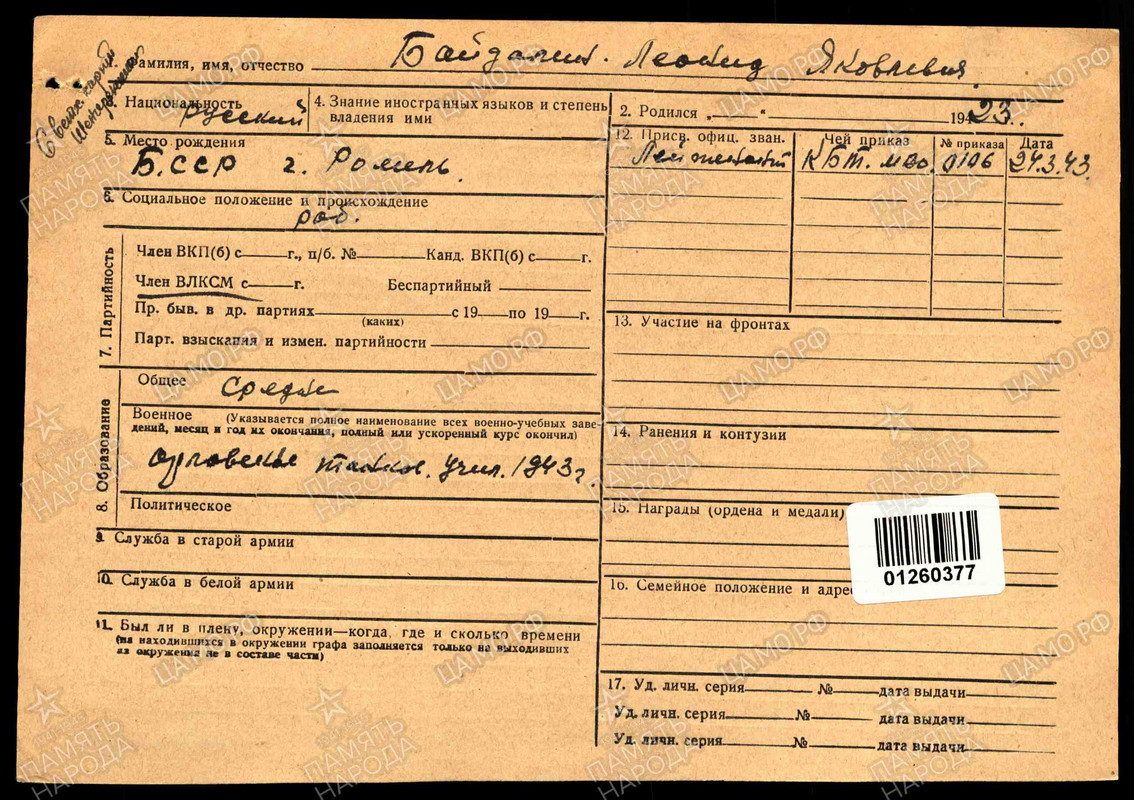 С велик. картой
Фамилия, имя, отчество Байдалин. Леонид Яковлевич
3. Национальность русский
4. Знание иностранных языков и степень
владения ими
5. Место рождения
БССР г. Гомель.
6. Социальное положение и происхождение
раб.
7. Партийность
Член ВКП(б) с г., п/б. № Канд. ВКП(б) с г.
Член ВЛКСМ с г. Беспартийный
Пр. быв. в др. партиях с 19 по 19 г.
(каких)
Парт. взыскания и измен. партийности
8. Образование
Общее средн
Военное (Указывается полное наименование всех военно-учебных заве-
дений, месяц и год их окончания, полный или ускоренный курс окончил)
Орловское танков. учил. 1943 г.
Политическое
9. Служба в старой армии
10. Служба в белой армии
11. Был ли в плену, окружении—когда, где и сколько времени
(на находившихся в окружении графа заполняется только на выходивших
из окружения не в составе части)
2. Родился „ “ 1923.
12. Присв. офиц. зван. Чей приказ № приказа Дата
Лейтенант КБТ. МВО. 0106 24.3.43.
13. Участие на фронтах
14. Ранения и контузии
15. Награды (ордена и медали)
01260377
16. Семейное положение и адрес
17. Уд. личн. серия № дата выдачи
Уд. личн. серия № дата выдачи
Уд. личн. серия № дата выдачи
ПАМЯТЬ НАРОДА
ЦАМО.РФ